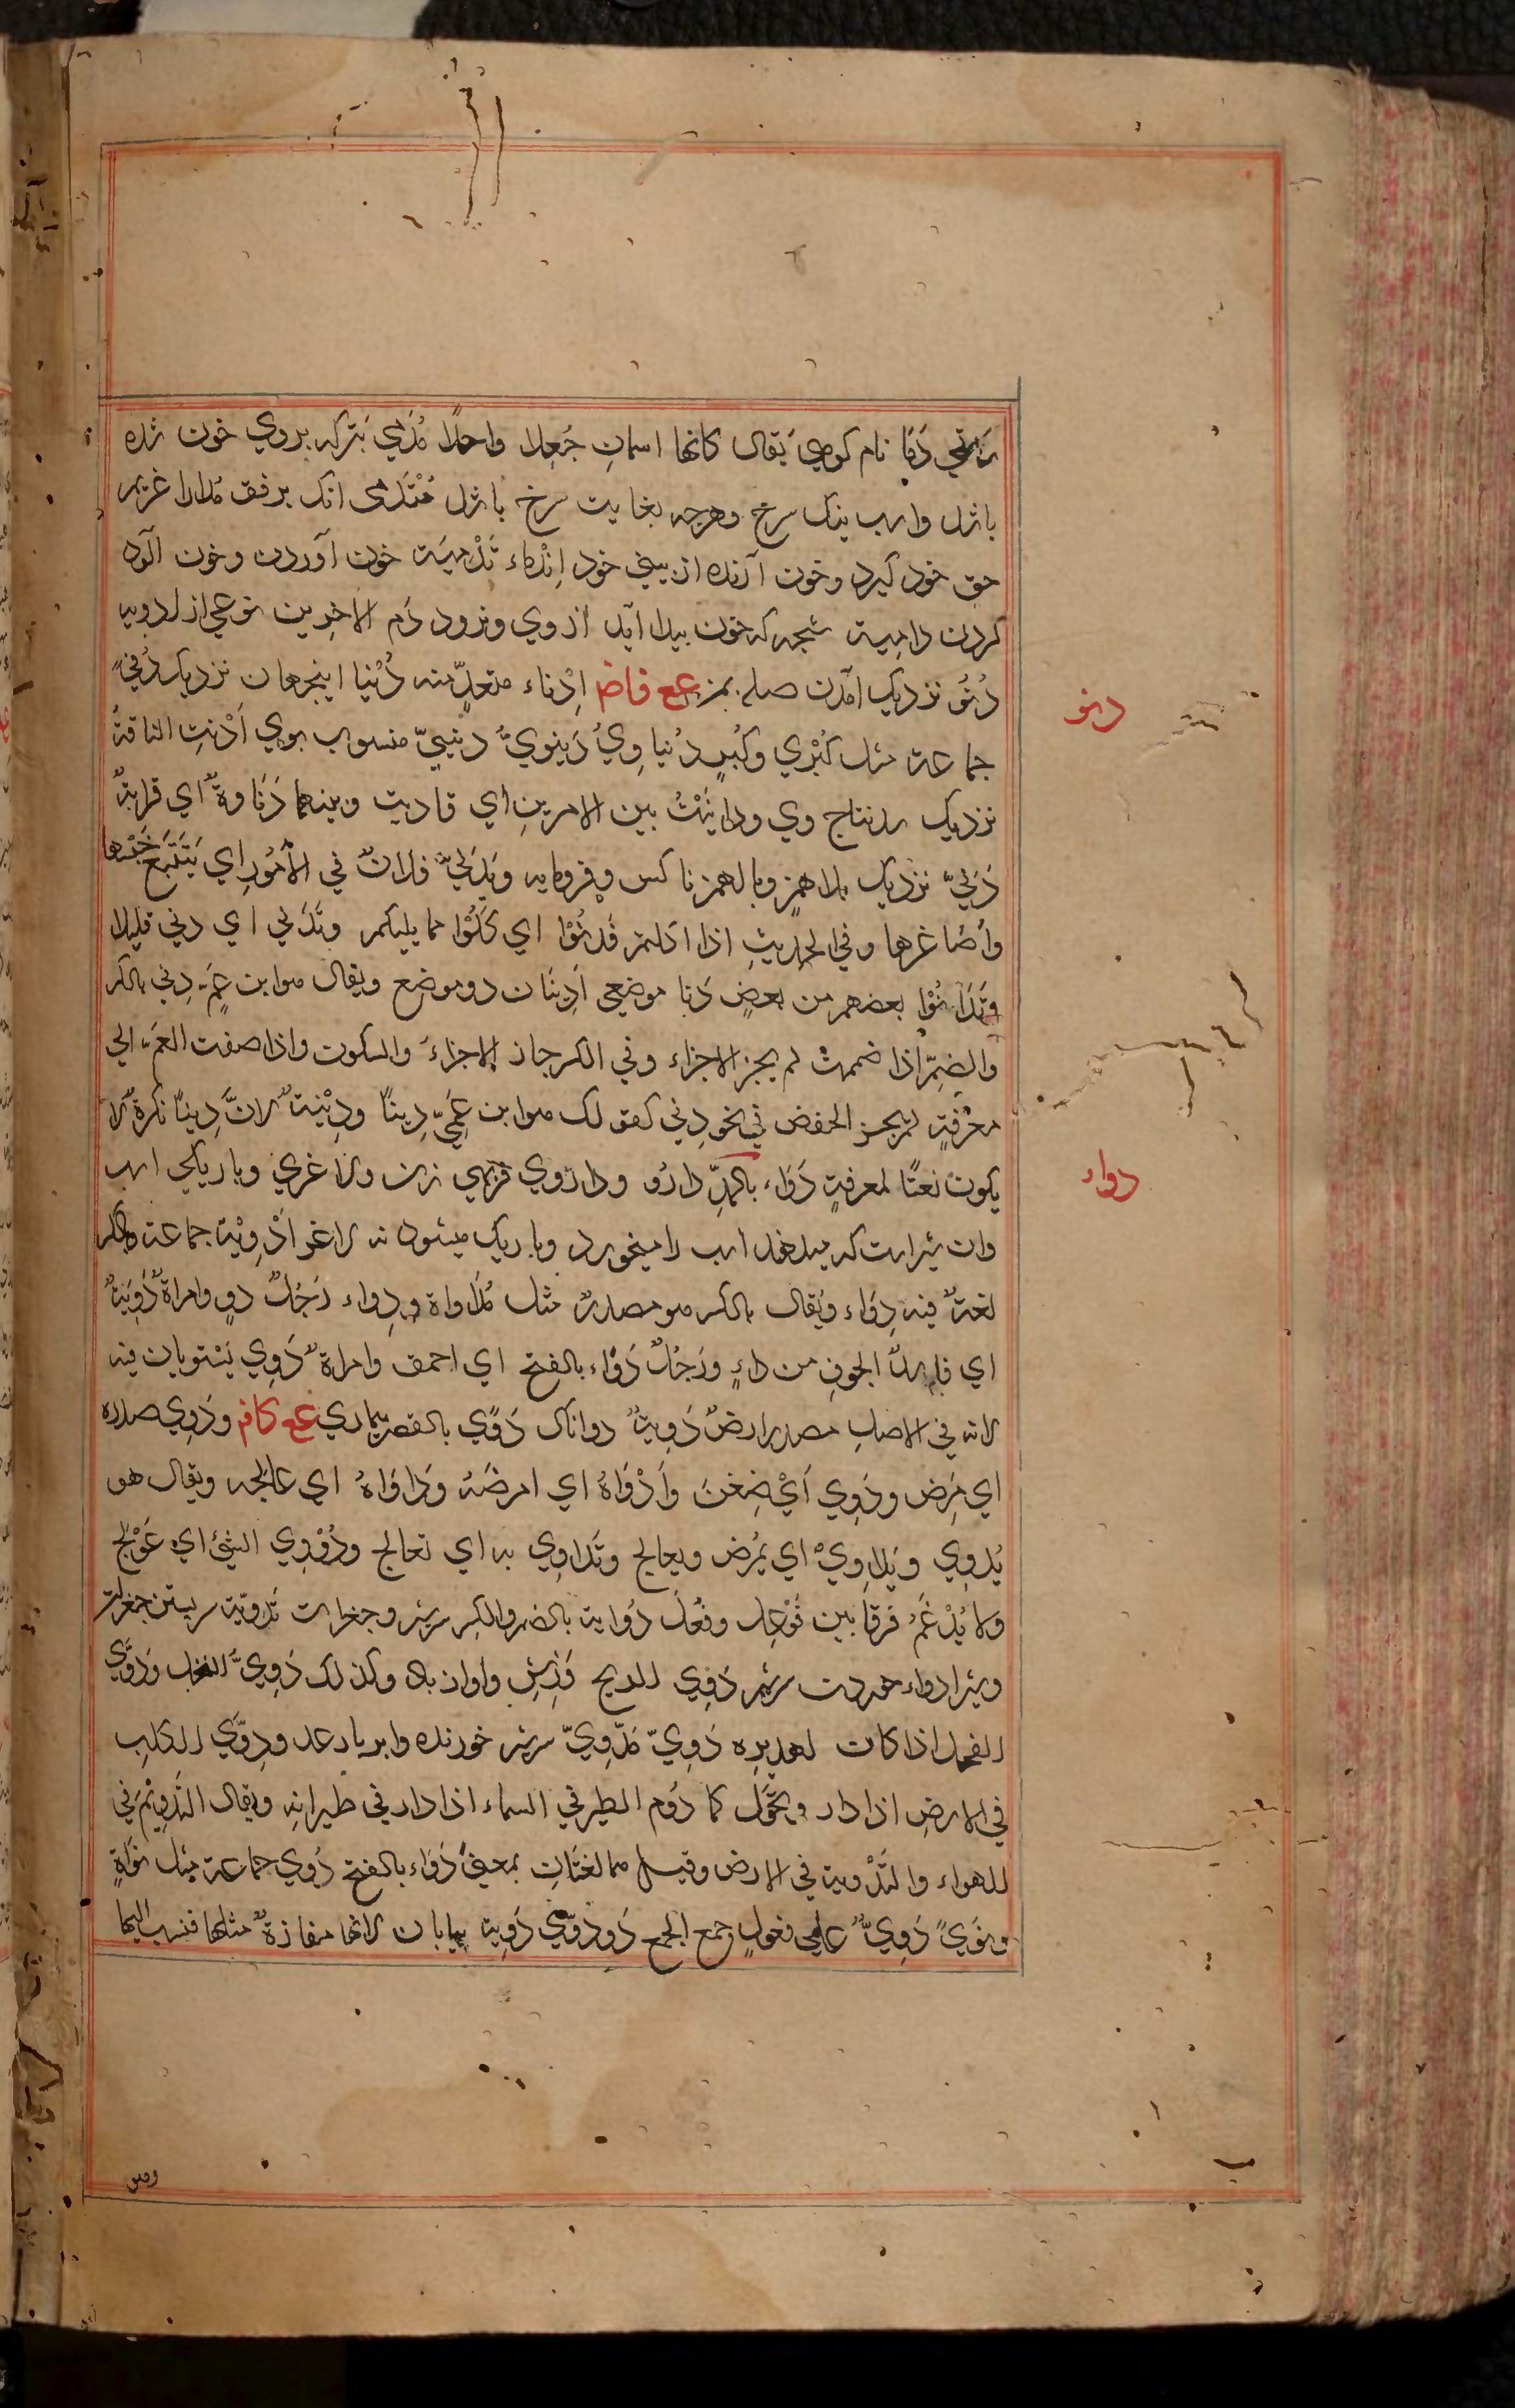 دَمَا نام كوهي يُقال كانها اسمانِ جُعِلا واحدًا مُدَمّي تيركه بروي خون شده
باشد واسب نيك سرخ وهرچه بغايت سرخ باشد مُسْتَدْمي انك برفق مُدارا غريم
حق خود كيرد وخون آرنده از بيني خود اِدْماء تَدْمِيَة خون آوردن وخون آلود
كردن دامِية شجه كه خون پيدا آيد از وي ونرود دَم الاخوين نوعي از ادويه
دنو
دُنُوّ نزديك آمدن صله بمن عع فاض اِدْناء متعدٍّ منه دُنْيا اينجهان نزديك دُنيً
جماعة مثل كُبْري وكُبَرٍ دُنياوِيٌ دُنيوِيٌّ دنييّ منسوب بوي اَدْنتِ الناقةُ
نزديك شد نتاج وي ودانَيْتُ بين الامرينِ اي قاربت وبينهما دَنَاوةٌ اي قرابةٌ
دَنيّ نزديك بلا همزٍ وبالهمز ناكس وفرومايه ويُدَنّي فلانٌ في الاُمُورِ اي يَتَتَبَّع خَسِيْسَها
وأصاغرها وفي الحديثِ اذا اكلتم فَدَنُّوا اي كُلُوا مما يليكم وتَدَنّي اي دني قليلا
وتَدَانُوْا بعضهم من بعضٍ دَنا موضعي اَدنَيان دو موضع ويقال هوا بن عمّ دِني بالكسر
والضمِّ اذا ضممتَ لم يجز الاجراء وفي الكسر جاز الاجراءُ والسكون واذا اضفت العمّ الي
معرفةٍ لم يجز الخفض في نحو دِني كقولك هوا بن عَمّي دِنيًا ودِنْيَةً لانّ دِنيًا نكرةٌ لا
دواء
يكون نعتًا لمعرفةٍ دَوَاء بالمدِّ دارُو وداروي فربهي زن ولاغري وباريكي اسب
وان شيراست كه ميدهند اسب را ميخورد وباريك ميشود نه لاغر اَدْوِيَة جماعة وبالكسر
لغةٌ فيه دِوَاء ويُقال بالكسر هو مصدرٌ مثل مُدَاواة ودِواء رَجُلٌ دوٍ وامراةٌ دَوِيَةٌ
اي فاسدُ الجوفِ من داءٍ ورَجُلٌ دَوًاء بالفتح اي احمق وامراةٌ دَوِي يَسْتويان فيه
لانه في الاصلِ مصدر ارضٌ دَوِيَةٌ دواناك دَوًي بالقصر بيماري عع كاف ودَوِي صدره
اي مَرِض ودَوِي اَيْ ضِغن وأَدْوَاهُ اي امرضَهُ ودَاوَاهُ اي عالجه ويقال هو
يُدوِي ويُداوِيْ اي يُمْرِض ويعالج وتَدَاوي به اي تعالج ودُوْوِي الشئ اي عُوْلِج
ولا يُدْغَمُ فرقا بين فُوْعِل وفُعِّل دُواية بالضم والكسر سرشير وجغرات تَدْوِيَة سربستن جغرات
وشير ادواء خوردن سرشير دَوِي الريح وَزِشِ واواز باد وكذلك دَوِيّ النحل ودَوّي
الفحل اذا كان لهديره دَوِيّ مُدّوِيّ سرشير خورنده وابر بارعد ودِوّي الكلب
في الارضِ اذا دار وتحوّل كما دَوّم الطير في السماء اذا دار في طيرانِه ويقال التَدْوِيْمُ في
الهواء والتَدْوية في الارض وقيل هما لغتانِ بمعنيً دَوَاء بالفتح دَوِي جماعة مثل نواةٍ
ونَوَيً دَوِيٌّ علي فعولٍ جمع الجمع دَوودَوّي دَوِيّة بيابان لانها مفازةٌ مثلها فنسب اليها
وهو